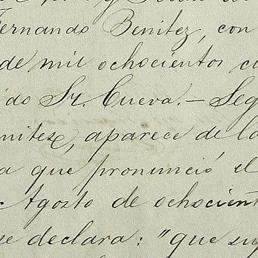 Fernando Benitez, con
de mil ochocientos
do Sr. Cueva.— Seg
nitez, aparece de la
a que pronunció el
Agosto de ochocient
se declara: "que su